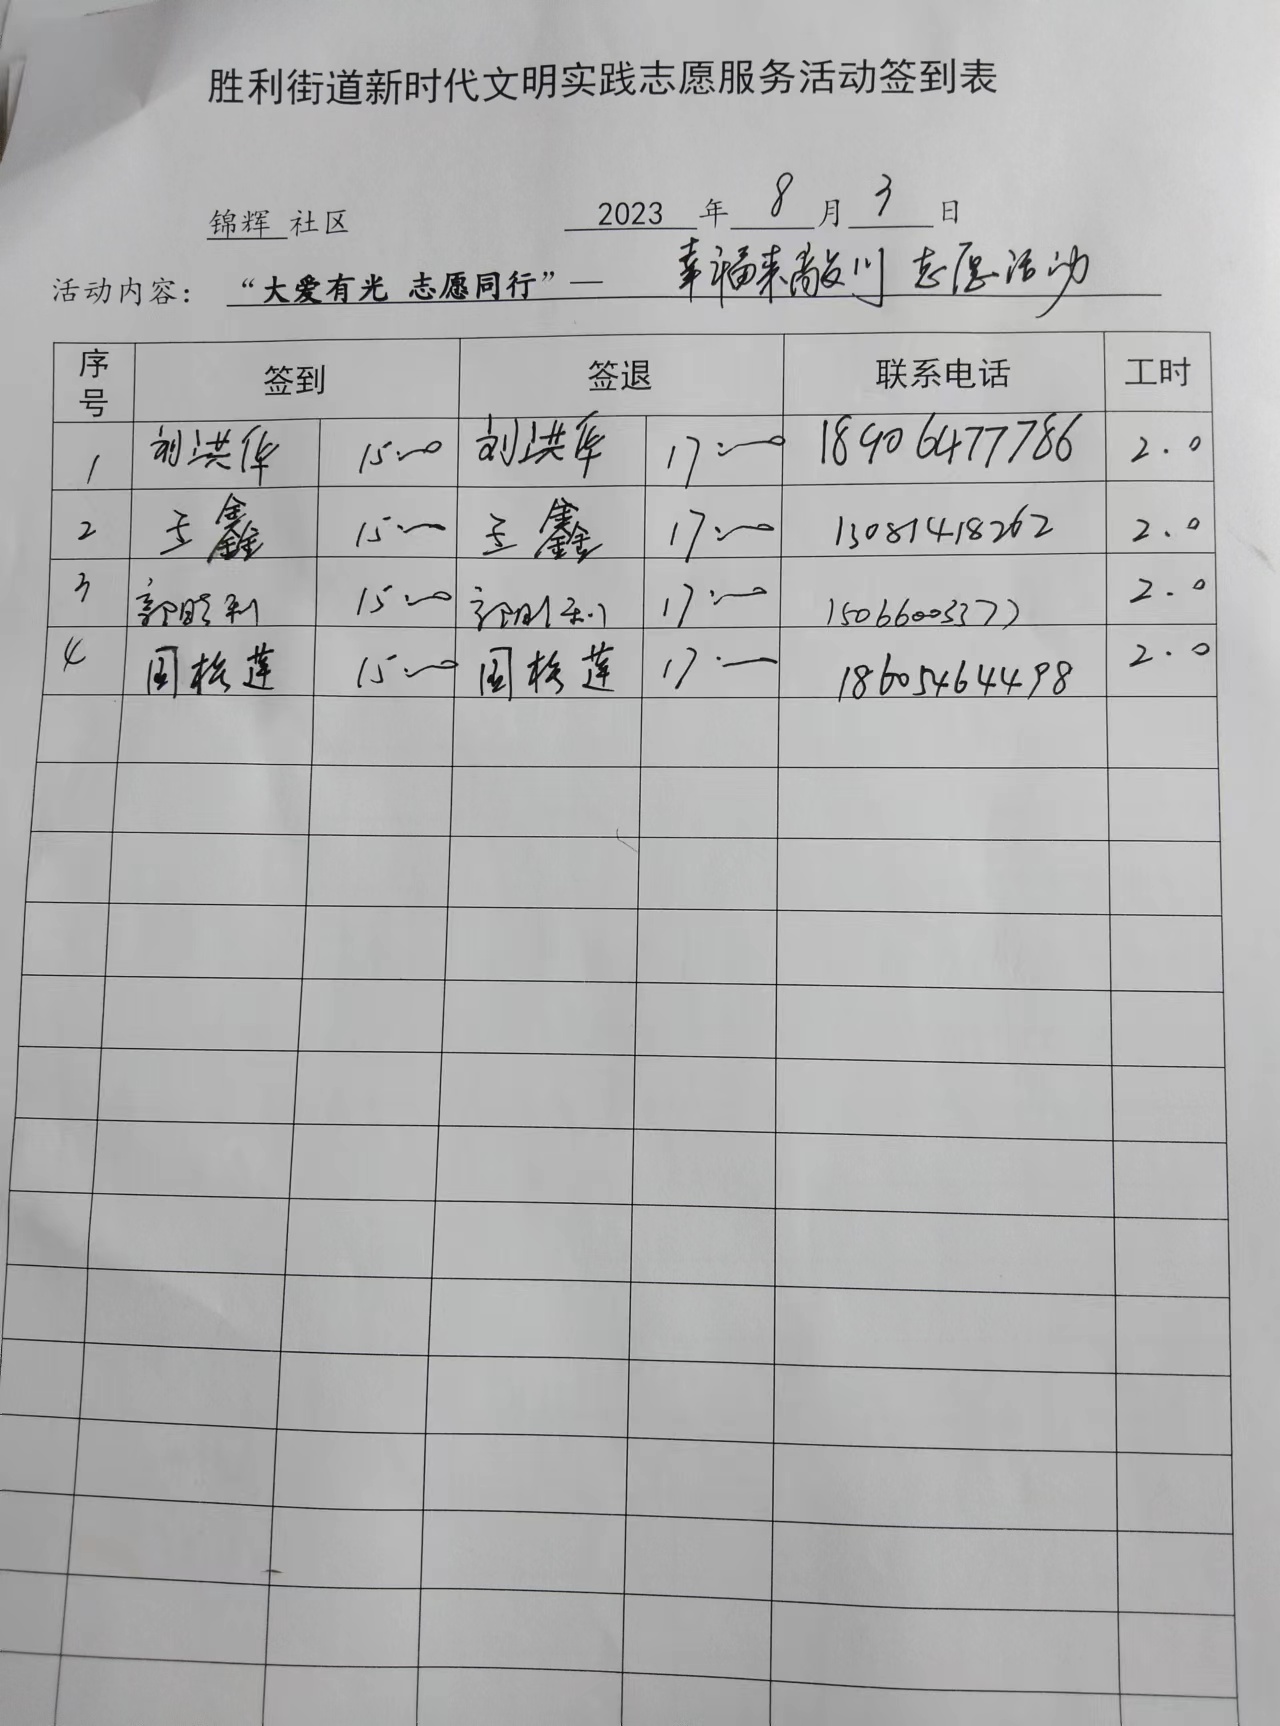 胜利街道新时代文明实践志愿服务活动签到表
锦辉 社区 2023 年 8 月 3 日
活动内容： “大爱有光 志愿同行”— 幸福来敲门 志愿活动
序号 签到 签退 联系电话 工时
1 刘洪华 15:00 刘洪华 17:00 18906477786 2.0
2 王鑫 15:00 王鑫 17:00 13081418262 2.0
3 15:00 17:00 2.0
4 15:00 17:00 18605464498 2.0